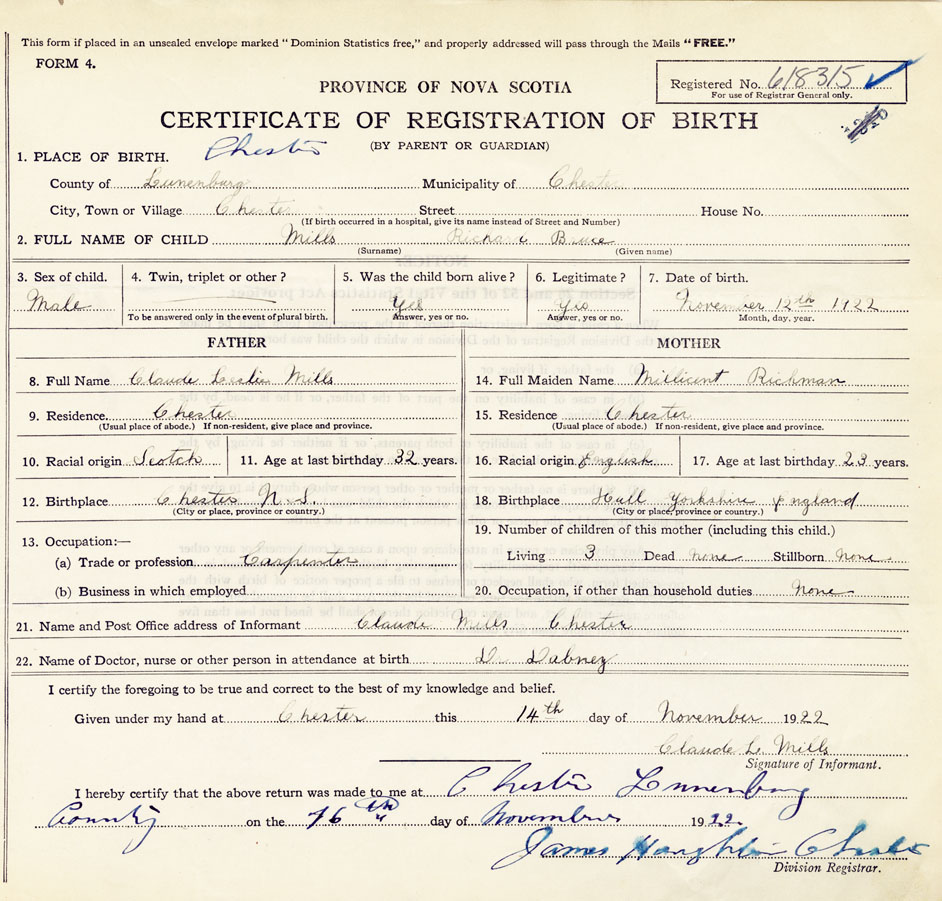 This form if placed in an unsealed envelope marked "Dominion Statistics free," and properly addressed will pass through the Mails "FREE."
FORM 4.
Registered No. 61835
For use of Registrar General only.
PROVINCE OF NOVA SCOTIA
CERTIFICATE OF REGISTRATION OF BIRTH
(BY PARENT OR GUARDIAN)
1. PLACE OF BIRTH. Chester
County of Lunenburg Municipality of Chester
City, Town or Village Chester Street House No.
(If birth occurred in a hospital, give its name instead of Street and Number)
2. FULL NAME OF CHILD Mills Richard Bruce
(Surname) (Given name)
3. Sex of child. 4. Twin, triplet or other? 5. Was the child born alive? 6. Legitimate? 7. Date of birth.
Male Yes Yes November 12th 1922
To be answered only in the event of plural birth. Answer, yes or no. Answer, yes or no. Month, day, year.
FATHER MOTHER
8. Full Name Claude Leslie Mills 14. Full Maiden Name Millicent Richman
9. Residence. Chester 15. Residence Chester
(Usual place of abode.) If non-resident, give place and province. (Usual place of abode.) If non-resident, give place and province.
10. Racial origin Scotch 11. Age at last birthday 32 years. 16. Racial origin English 17. Age at last birthday 23 years.
12. Birthplace Chester N.S. 18. Birthplace Hull Yorkshire England
(City or place, province or country.) (City or place, province or country.)
19. Number of children of this mother (including this child.)
13. Occupation:—
Living 3 Dead None Stillborn None
(a) Trade or profession Carpenter
(b) Business in which employed 20. Occupation, if other than household duties None
21. Name and Post Office address of Informant Claude Mills Chester
22. Name of Doctor, nurse or other person in attendance at birth Dr Dabney
I certify the foregoing to be true and correct to the best of my knowledge and belief.
Given under my hand at Chester this 14th day of November 1922
Claude L. Mills
Signature of Informant.
I hereby certify that the above return was made to me at Chester Lunenburg
County on the 16th day of November 1922
James Houghton Chester
Division Registrar.